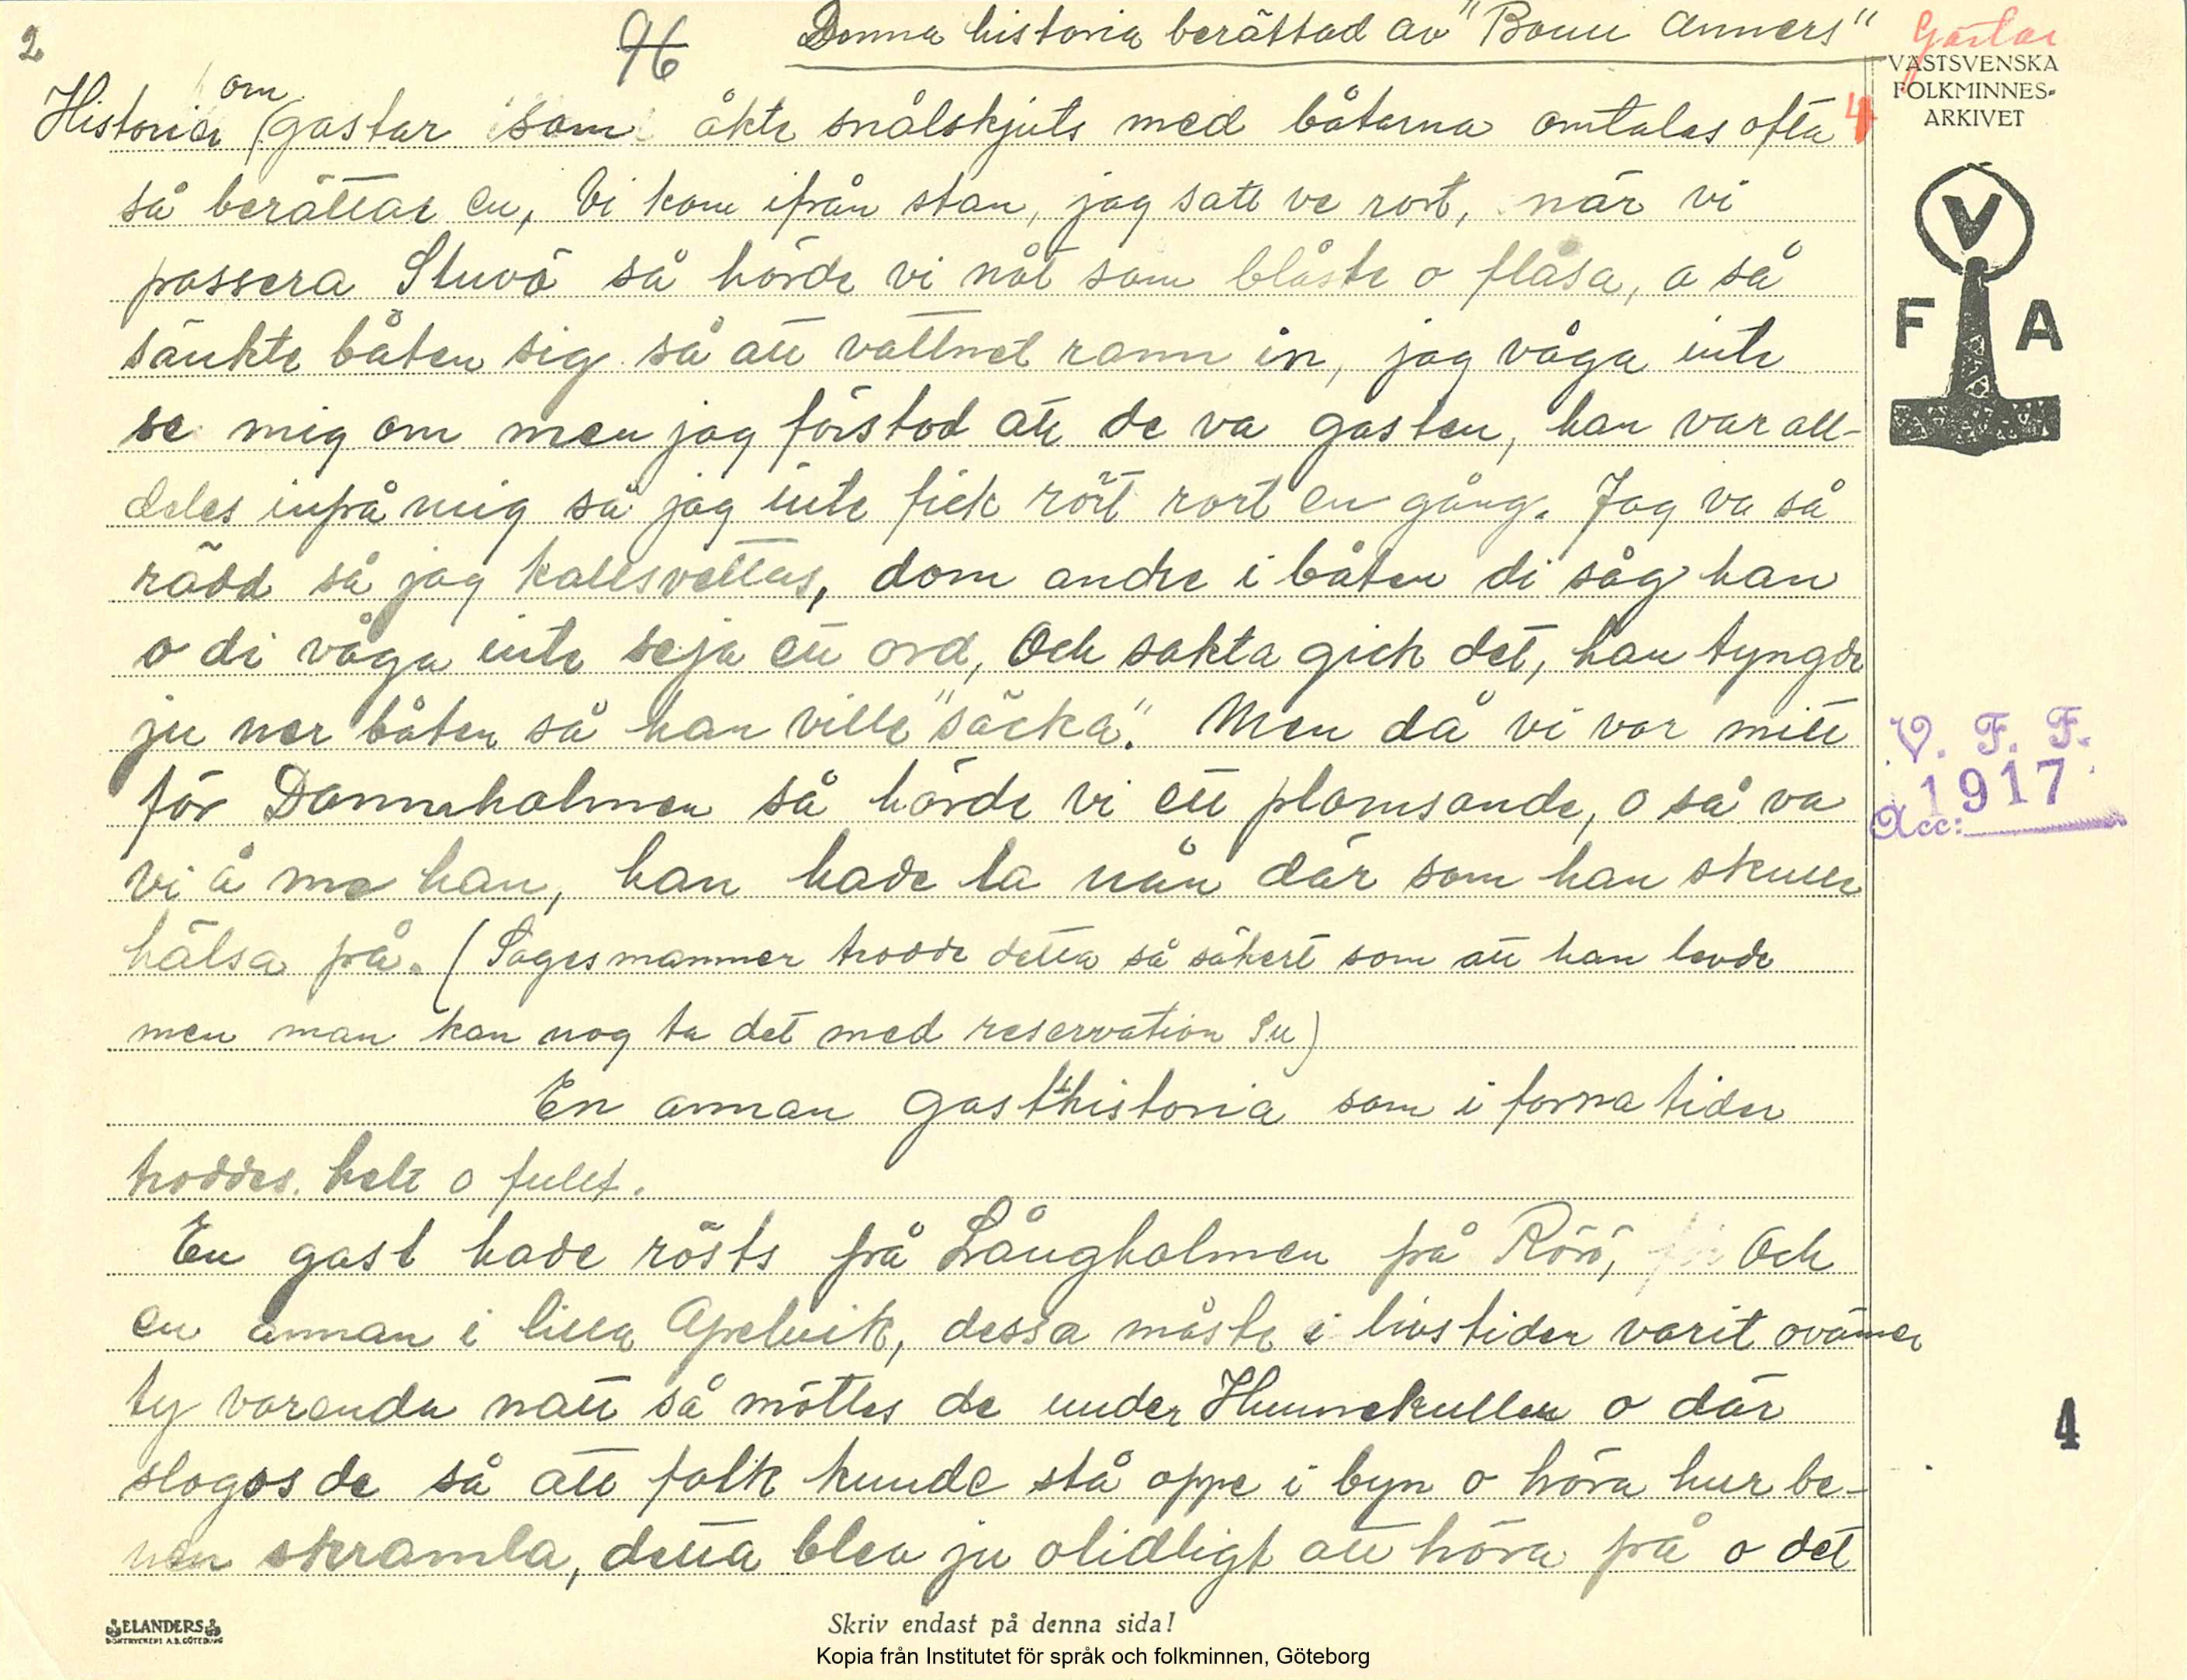 2
96
Denna historia berättad av "Bonn Anners"
Gastar
VÄSTSVENSKA
FOLKMINNES-
ARKIVET
om
Historier gastar som åkte snålskjuts med båtarna omtalas ofta
4
så berättar en, Vi kom ifrån stan, jag satt ve rort, när vi
passera Stuvö så hörde vi nåt som blåste o flåsa, o så
sänkte båten sig så att vattnet rann in, jag våga inte
se mig om men jag förstod att de va gasten, han var all-
deles inpå mig så jag inte fick rört rort en gång. Jag va så
rädd så jag kallsvettas, dom andre i båten di såg han
o di våga inte seja ett ord, Och sakta gick det, han tyngde
ju ner båten så han ville "säcka". Men då vi var mitt
för Dannholmen så hörde vi ett plomsande, o så va
vi å me han, han hade la nån där som han skulle
hälsa på. (Sagesmannen trodde detta så säkert som att han levde
men man kan nog ta det med reservation Su)
En annan gasthistoria som i forna tider
troddes helt o fullt.
En gast hade rösts på Långholmen på Rörö, Och
en annan i lilla Apelvik, dessa måste i livstiden varit ovänner
ty varenda natt så möttes de under Hunnekullen o där
slogos de så att folk kunde stå oppe i byn o höra hur be-
nen skramla, detta blev ju olidligt att höra på o det
V
F A
V. F. F.
1917
Acc:
4
ELANDERS
BOKTRYCKERI A.B. GÖTEBORG
Skriv endast på denna sida!
Kopia från Institutet för språk och folkminnen, Göteborg